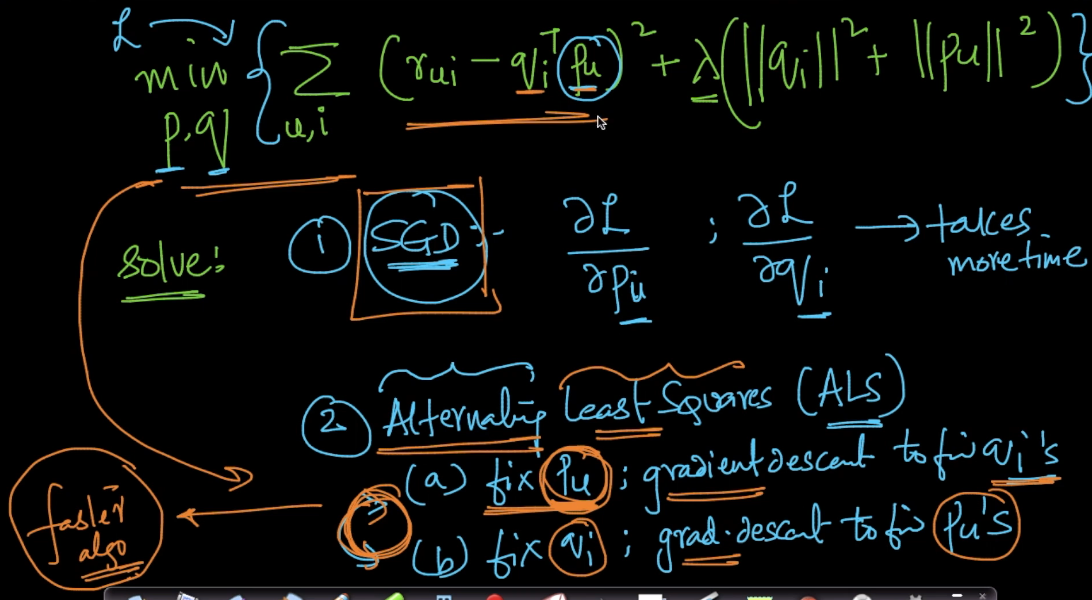 L
min { Σ (rui − qiᵀ pu)² + λ(||qi||² + ||pu||²) }
p,q u,i
solve: ① SGD :- ∂L/∂pu ; ∂L/∂qi → takes more time
② Alternating Least Squares (ALS)
(a) fix pu ; gradient descent to fin qi's
(b) fix qi ; grad. descent to fin pu's
faster
also